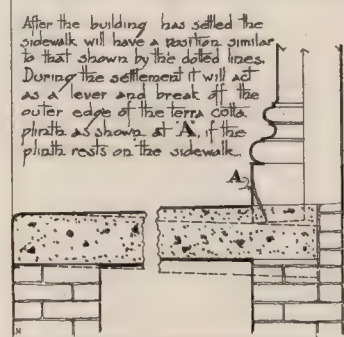 After the building has settled the
sidewalk will have a position similar
to that shown by the dotted lines.
During the settlement it will act
as a lever and break off the
outer edge of the terra cotta
plinth as shown at "A", if the
plinth rests on the sidewalk.
A
N